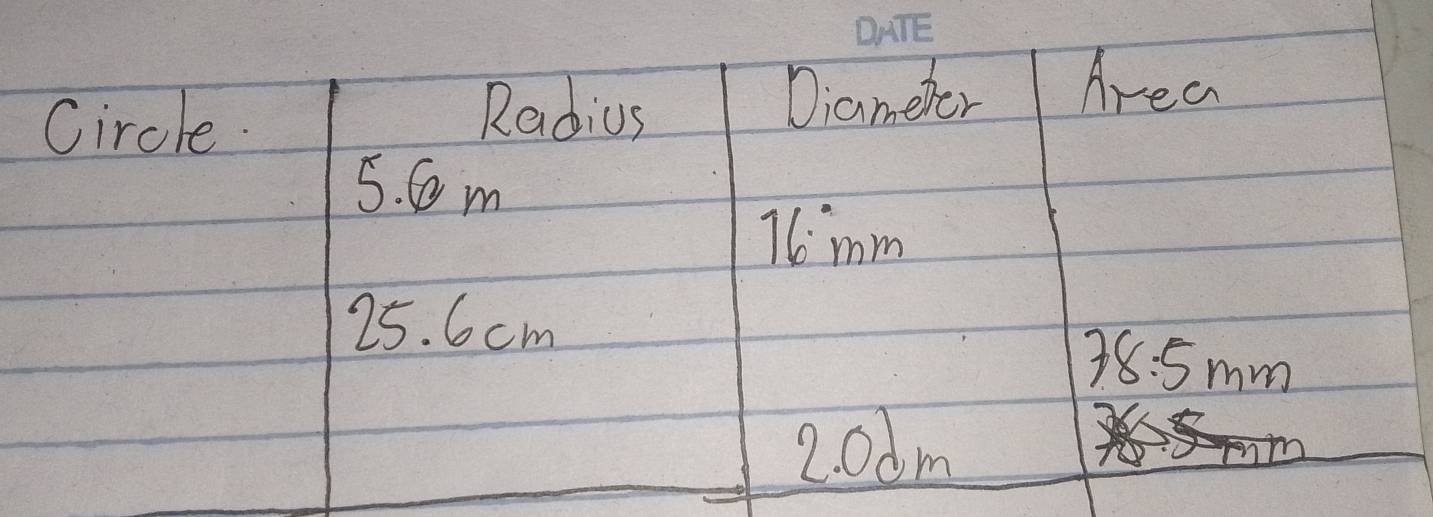 DATE
Circle. Radius Diameter Area
5.6 m
16 mm
25.6cm
78.5mm
2.0dm